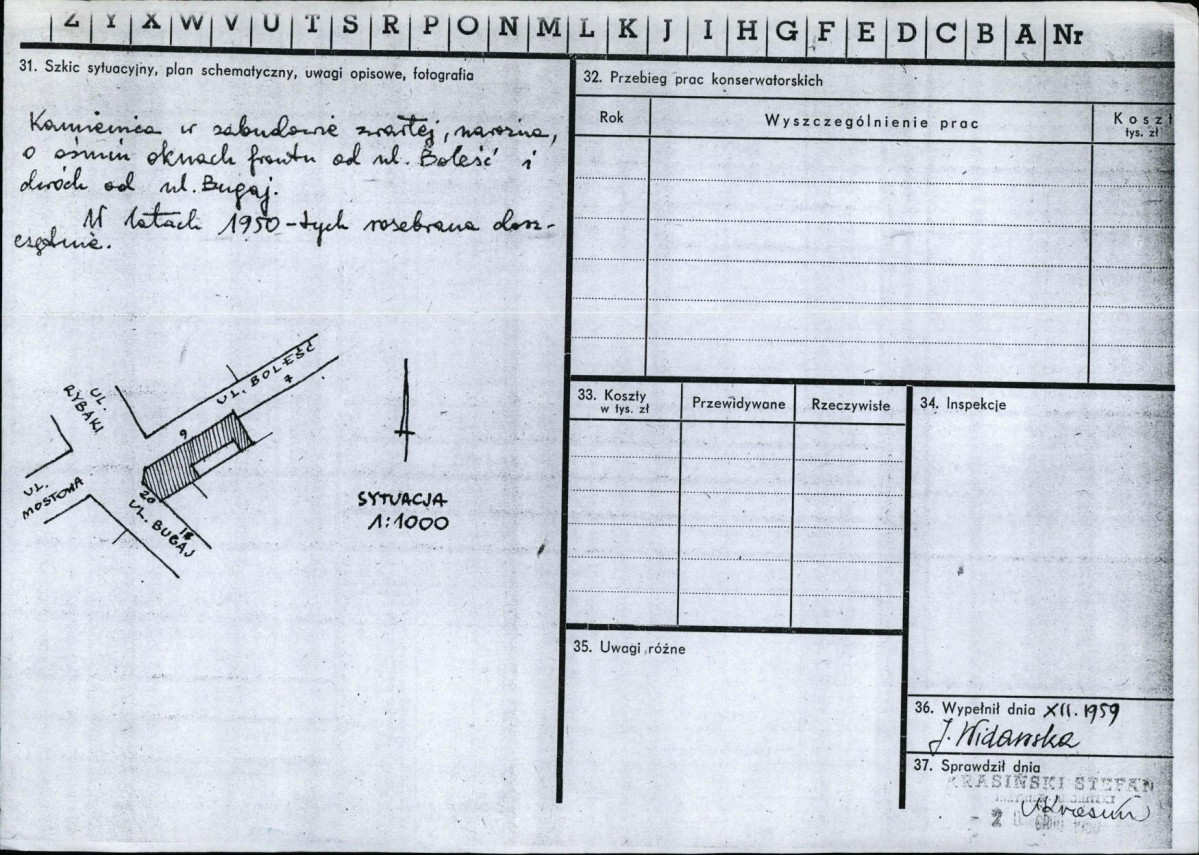 Z Y X W V U T S R P O N M L K J I H G F E D C B A Nr
31. Szkic sytuacyjny, plan schematyczny, uwagi opisowe, fotografia
Kamienica w zabudowie zwartej, narożna,
o ośmiu oknach frontu od ul. Boleść i
dwóch od ul. Bugaj.
W latach 1950-tych rozebrana dosz-
czętnie.
UL. BOLEŚĆ
7
UL.
RYBAKI
9
UL.
MOSTOWA
20
UL. BUGAJ
18
SYTUACJA
1:1000
32. Przebieg prac konserwatorskich
Rok Wyszczególnienie prac Koszt
tys. zł
33. Koszty
w tys. zł
Przewidywane Rzeczywiste
34. Inspekcje
35. Uwagi różne
36. Wypełnił dnia XII. 1959
J. Widawska
37. Sprawdził dnia
KRASIŃSKI STEFAN
2